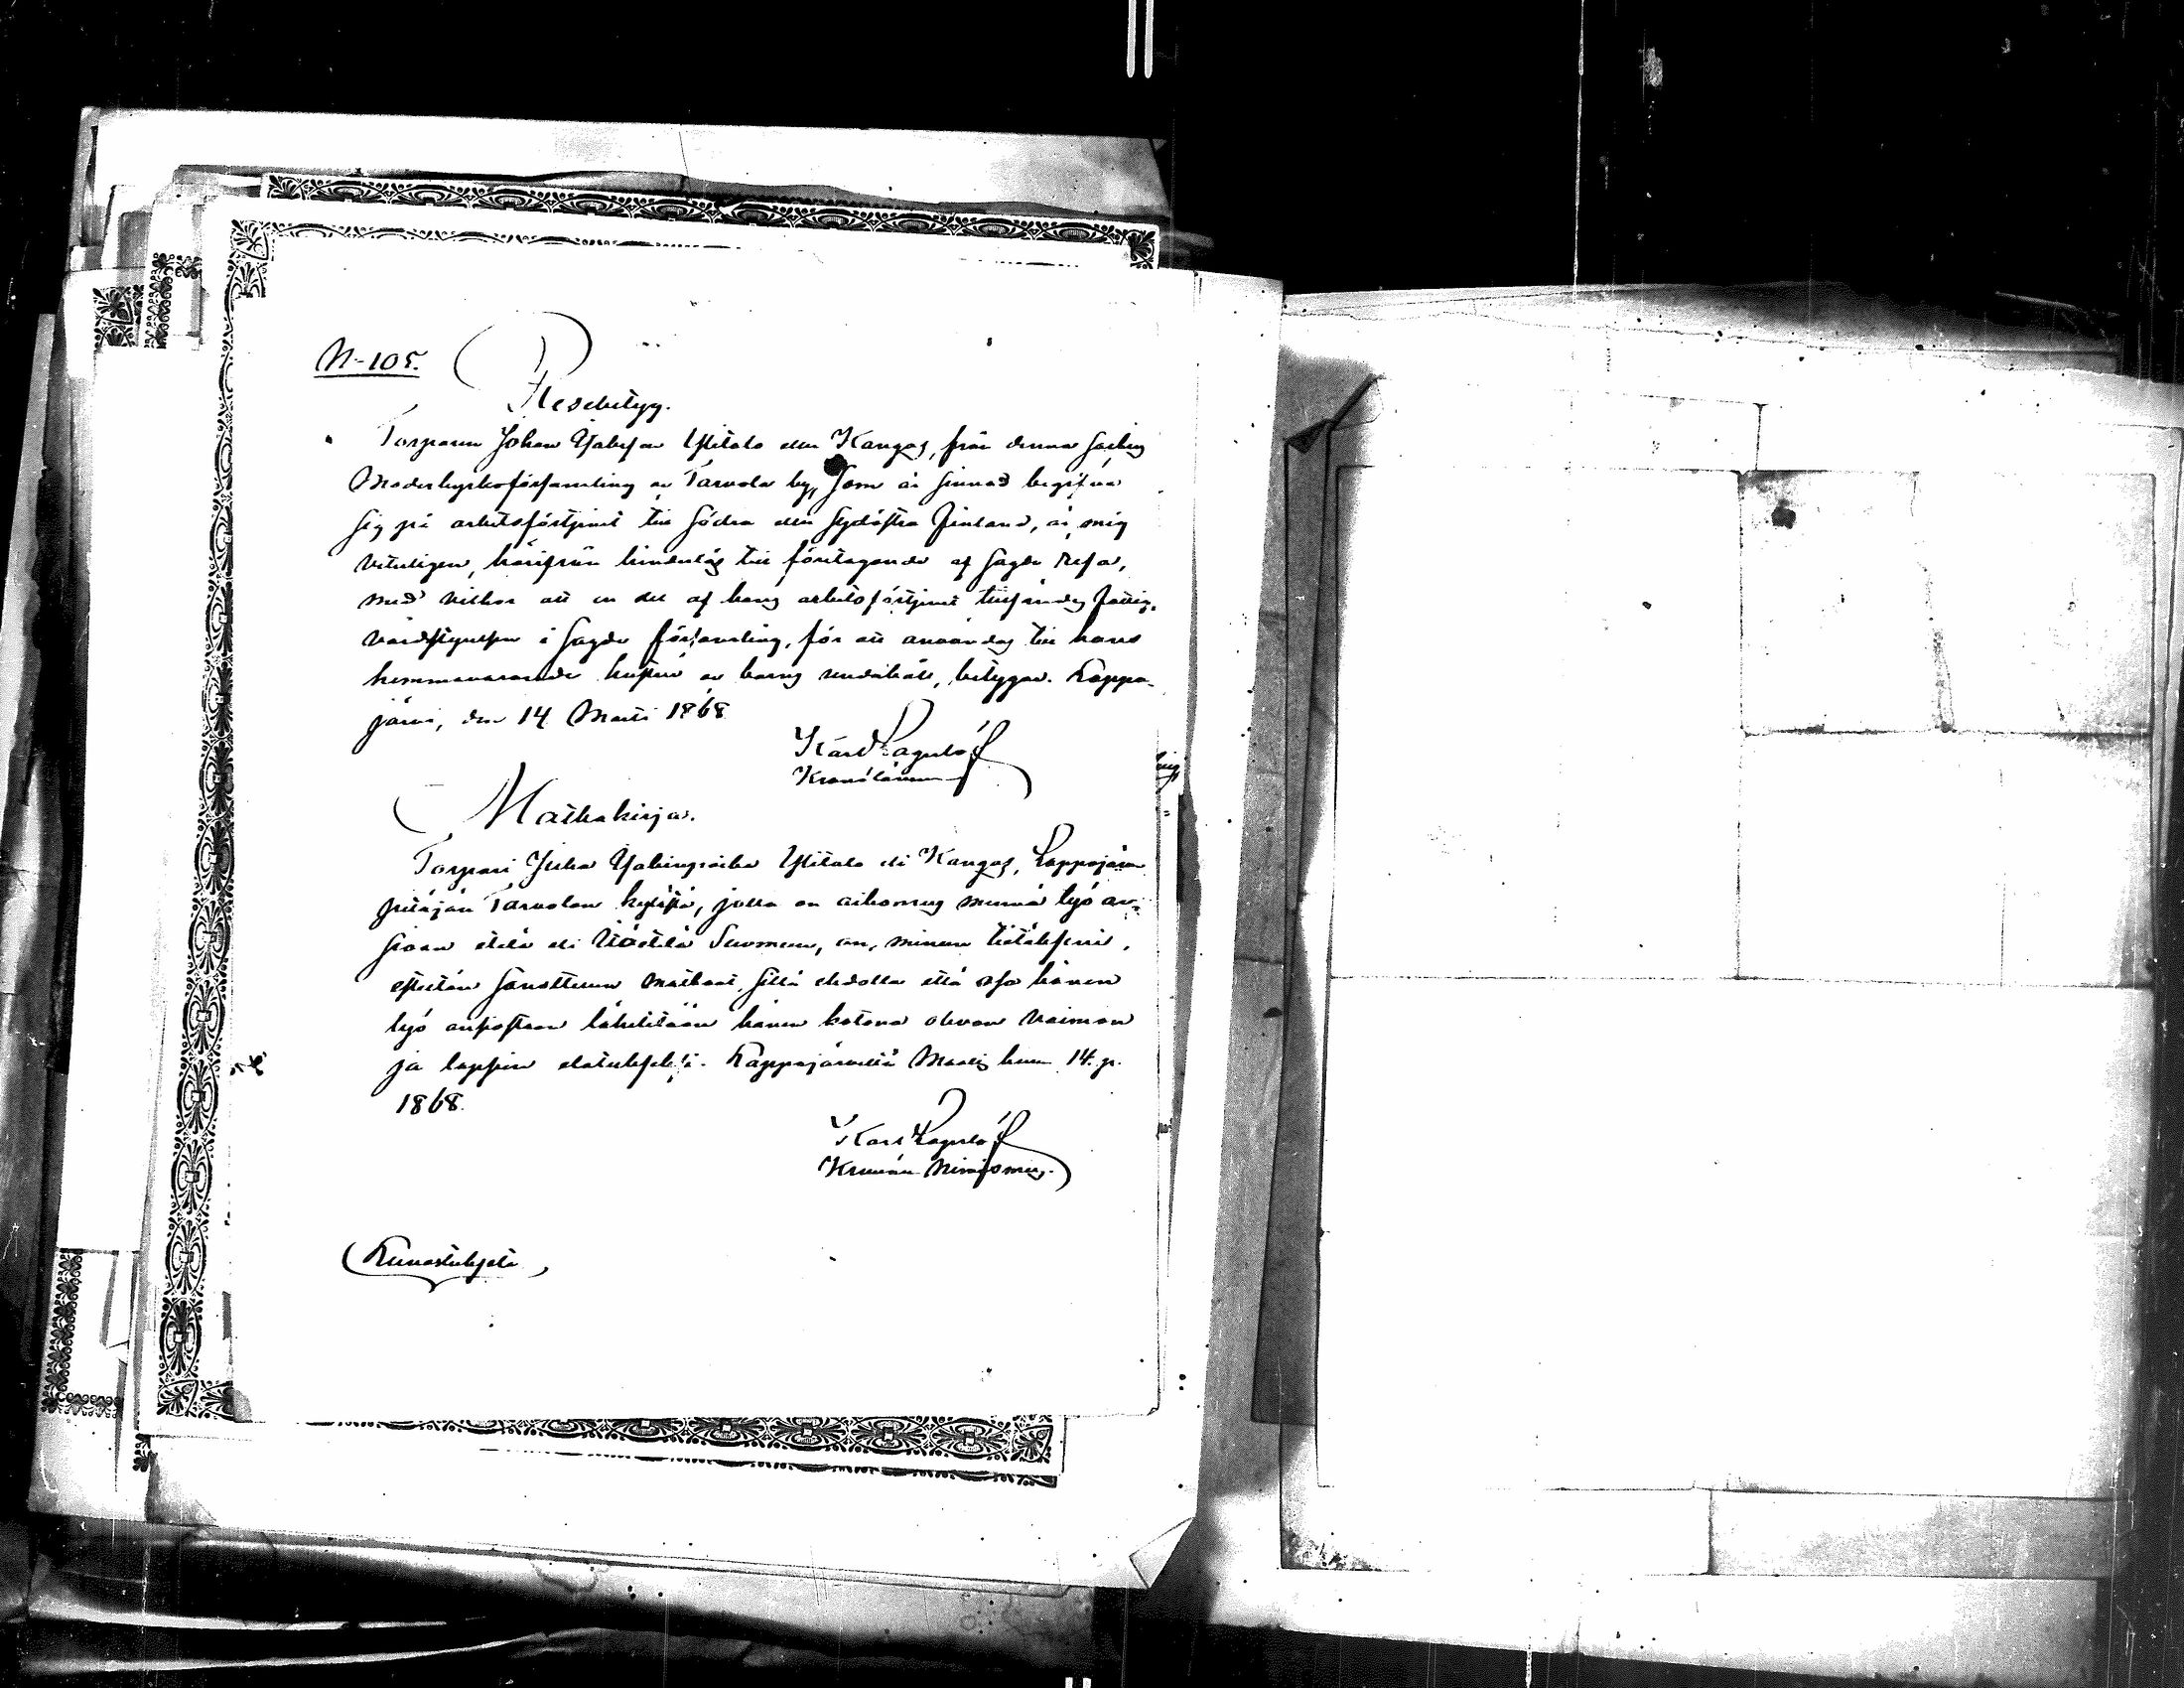 N-105.
Resebetyg.
Torparen Johan Jakobsson Ylitalo eller Kangas, från denna Socken
Moderkyrkoförsamling av Tarvola by, som är sinnad begifva
sig på arbetsförtjenst till Södra eller Sydöstra Finland, är mig
veterligen, härifrån hinderlös till företagande af sagde resa,
med vilkor att en del af hans arbetsförtjenst tillsändes fattig-
vårdstyrelsen i sagde församling, för att användas till hans
hemmavarande hustru och barns underhåll, betygar. Lappo-
järvi, den 14 Marti 1868.
Karl Lagerlöf
Kronolänsman
Matkakirja.
Torpari Juha Jakobinpoika Ylitalo eli Kangas, Lappajärven
pitäjän Tarvolan kylästä, jolla on aikomus mennä työ an-
sioon etelä eli Itäetelä Suomeen, on, minun tietääkseni,
esteetön sanottuun matkaan, sillä ehdolla että osa hänen
työ ansiostaan lähetetään hänen kotona olevan vaimon
ja lapsien elatukseksi. Lappajärvellä Maalis kuun 14. p.
1868.
Karl Lagerlöf
Kruunun Nimismies.